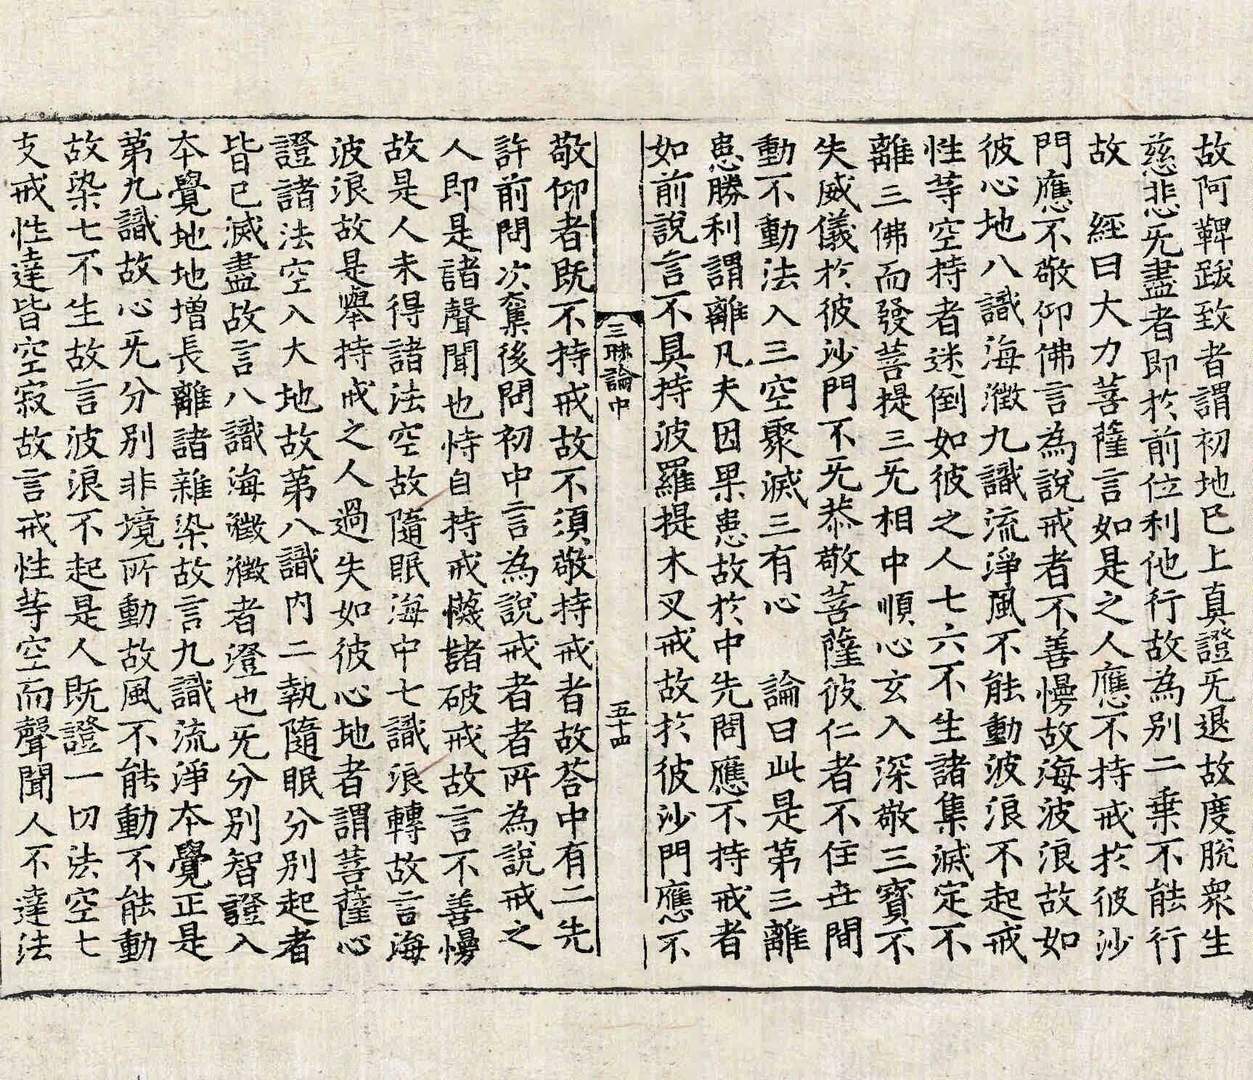 故阿鞞跋致者謂初地已上真證旡退故度脫衆生
慈悲旡盡者即於前位利他行故為別二乗不能行
故　經曰大力菩薩言如是之人應不持戒於彼沙
門應不敬仰佛言為說戒者不善慢故海波浪故如
彼心地八識海澂九識流淨風不能動波浪不起戒
性等空持者迷倒如彼之人七六不生諸集滅定不
離三佛而發菩提三旡相中順心玄入深敬三寶不
失威儀於彼沙門不旡恭敬菩薩彼仁者不住世間
動不動法入三空聚滅三有心　論曰此是第三離
患勝利謂離凡夫因果患故於中先問應不持戒者
如前說言不具持波羅提木叉戒故於彼沙門應不
三昧論中　五十四
敬仰者既不持戒故不須敬持戒者故荅中有二先
許前問次奪後問初中言為說戒者者所為說戒之
人即是諸聲聞也恃自持戒懱諸破戒故言不善慢
故是人未得諸法空故隨眠海中七識浪轉故言海
波浪故是舉持戒之人過失如彼心地者謂菩薩心
證諸法空入大地故第八識内二執隨眠分別起者
皆已滅盡故言八識海澂澂者澄也旡分別智證入
本覺地地增長離諸雜染故言九識流淨本覺正是
第九識故心旡分別非境所動故風不能動不能動
故染七不生故言波浪不起是人既證一切法空七
支戒性達皆空寂故言戒性等空而聲聞人不達法